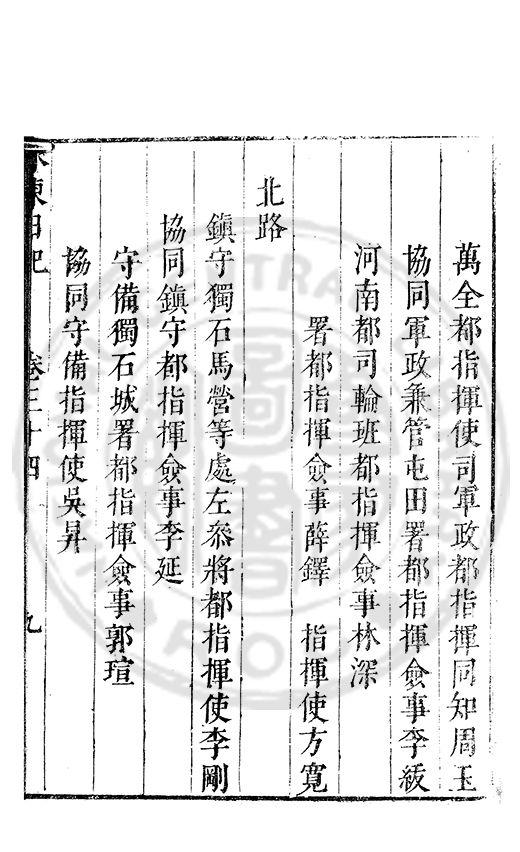 萬全都指揮使司軍政都指揮同知周玉
協同軍政兼管屯田署都指揮僉事李綾
河南都司輪班都指揮僉事林深
署都指揮僉事薛鐸　指揮使方寬
北路
鎮守獨石馬營等處左叅將都指揮使李剛
協同鎮守都指揮僉事李延
守備獨石城署都指揮僉事郭瑄
協同守備指揮使吳昇
水東日記　卷三十四　九